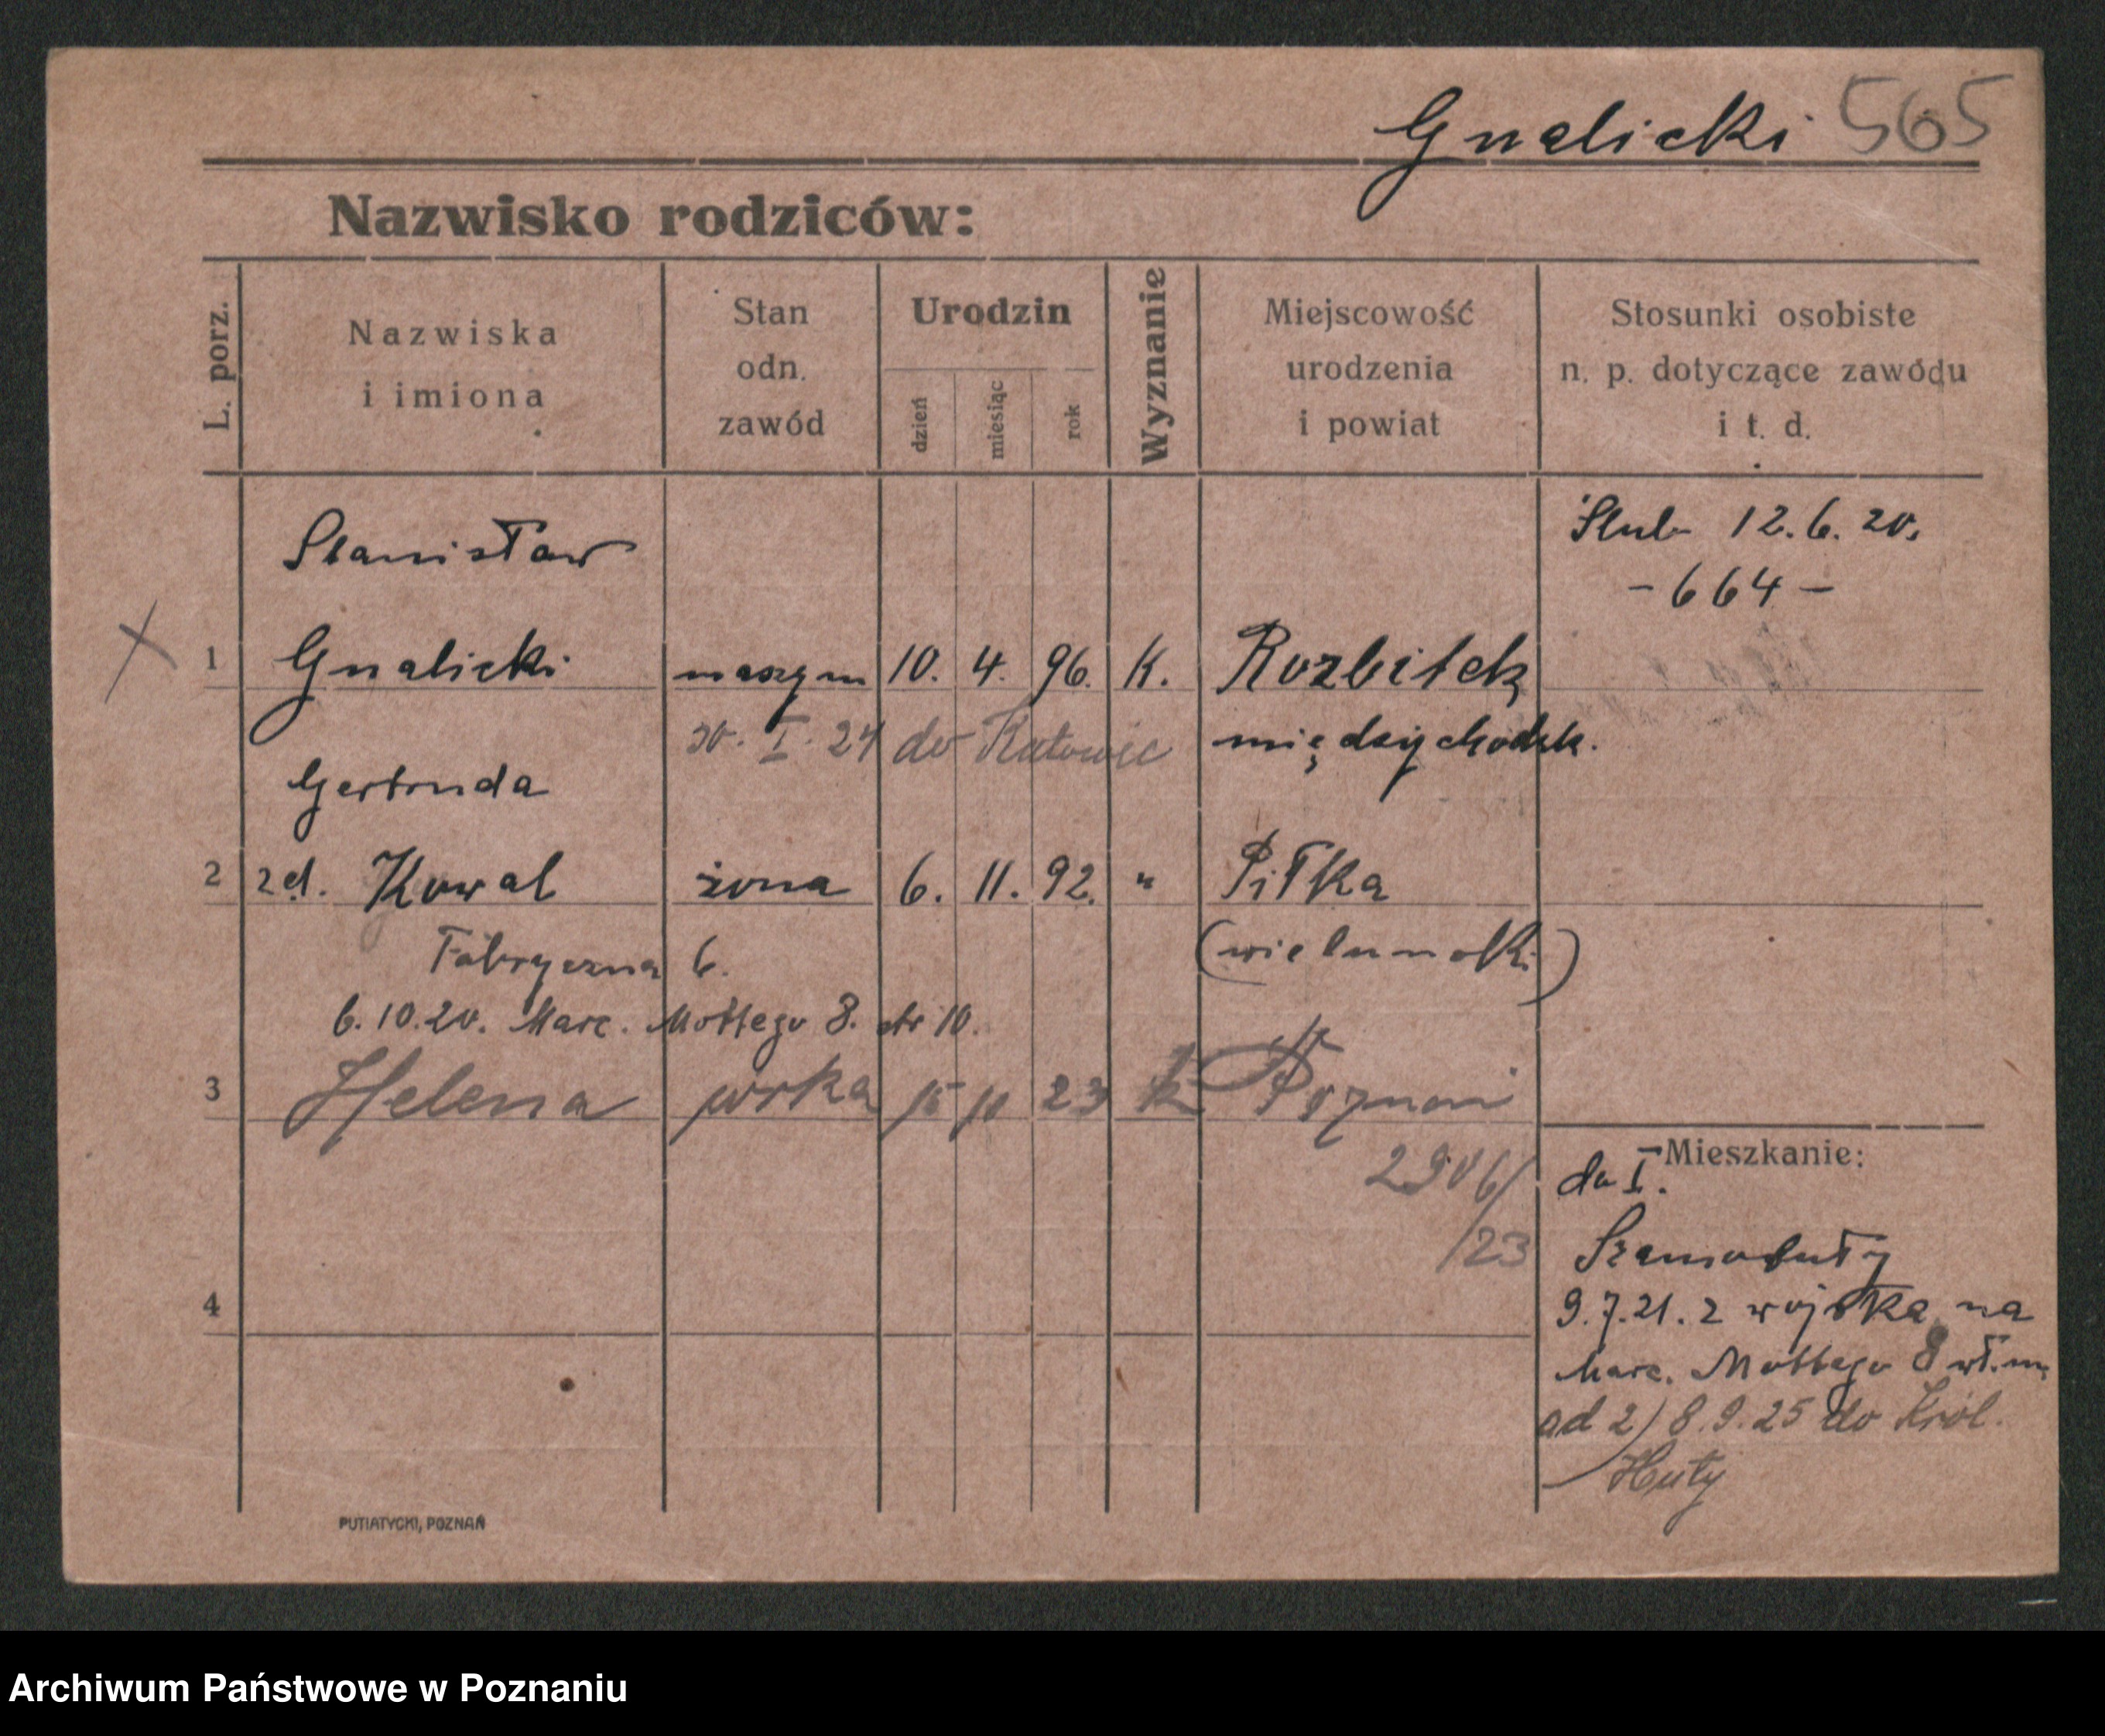 Gnalicki 565
Nazwisko rodziców:
L. porz.
Nazwiska
i imiona
Stan
odn.
zawód
Urodzin
dzień
miesiąc
rok
Wyznanie
Miejscowość
urodzenia
i powiat
Stosunki osobiste
n. p. dotyczące zawodu
i t. d.
Stanisław
Ślub 12.6.20.
- 664 -
1 Gnalicki maszyn 10. 4. 96. K. Rozbitek
30. I. 24 do Katowic
międzychodzk.
Gertruda
2 zd. Kowal żona 6. 11. 92. " Piłka
(wieluński)
Fabryczna 6.
6.10.20. Marc. Mottego 8. ctr 10.
3 Helena córka 15 10 23 k Poznań
2906/
/23
Mieszkanie:
do I.
Szamotuły
9.7.21. z wojska na
Marc. Mottego 8
ad 2) 8.9.25 do Król.
Huty
4
PUTIATYCKI, POZNAŃ
Archiwum Państwowe w Poznaniu